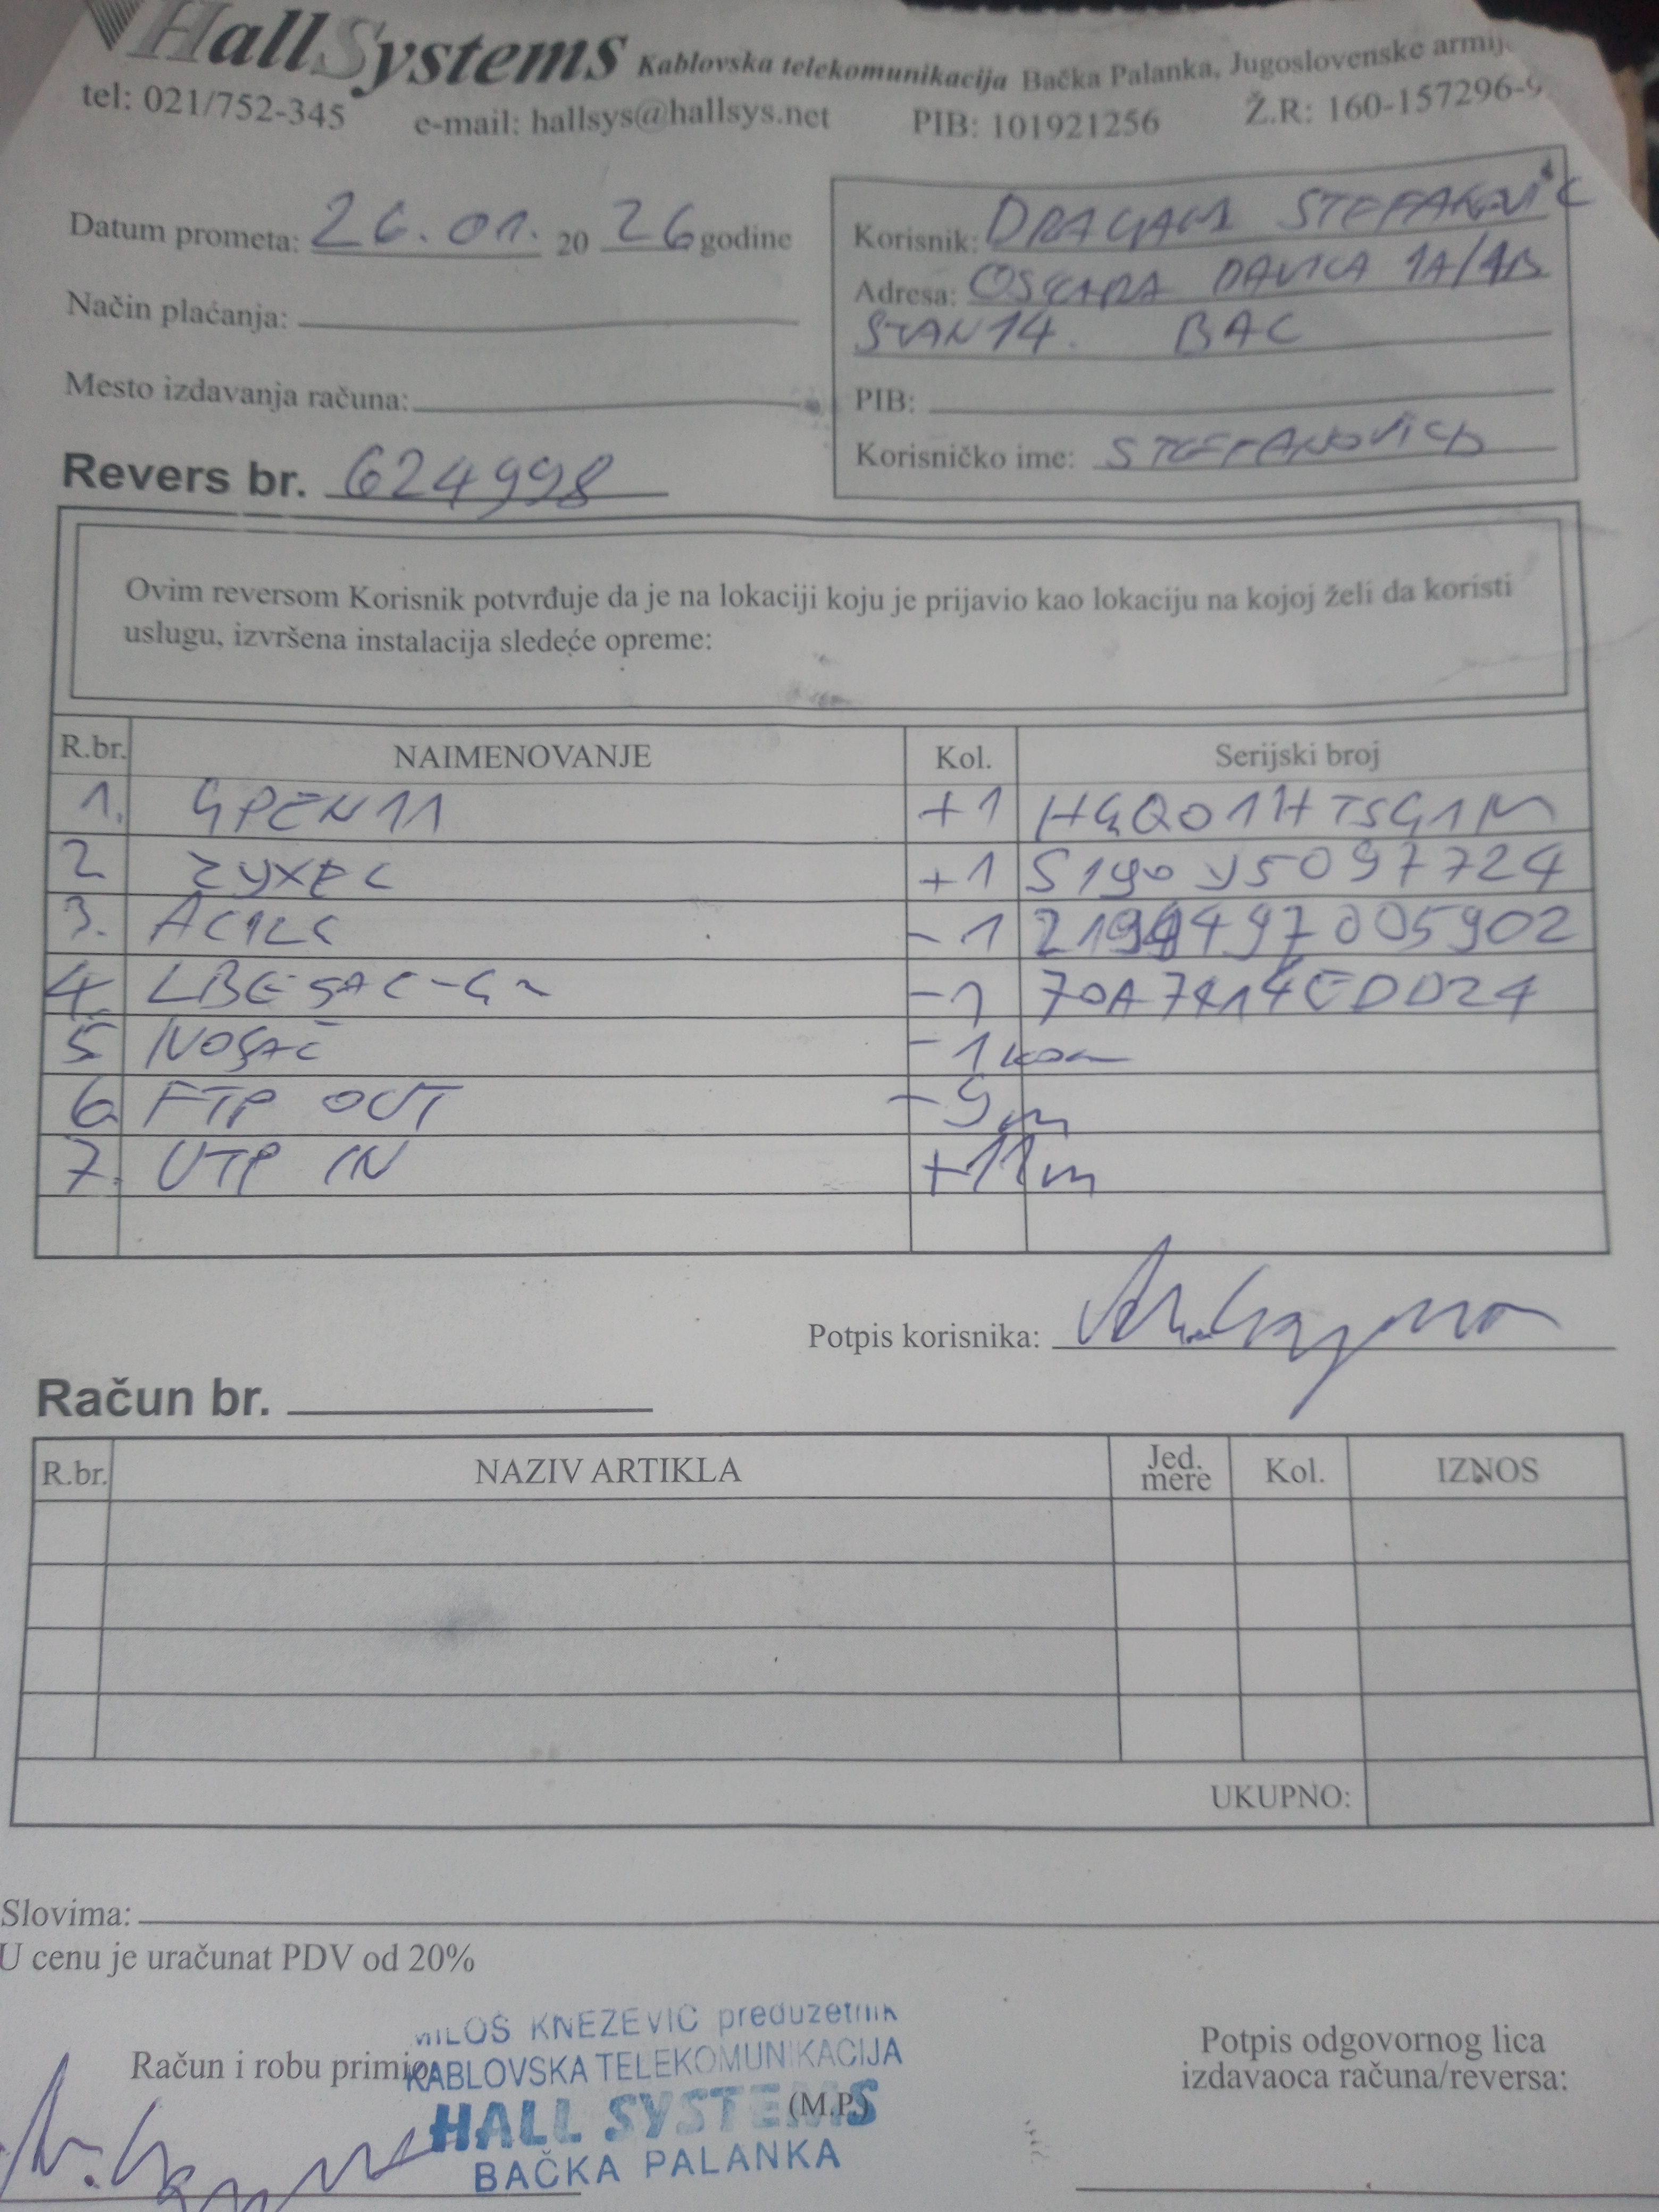 HallSystems Kablovska telekomunikacija Bačka Palanka, Jugoslovenske armij
tel: 021/752-345 e-mail: hallsys@hallsys.net PIB: 101921256 Ž.R: 160-157296-9
Datum prometa: 26.01. 20 26 godine
Način plaćanja:
Mesto izdavanja računa:
Revers br. 624998
Korisnik: DRAGAN STEFANOVIĆ
Adresa: OSKARA DAVIČA 1A/1B
STAN 14. BAČ
PIB:
Korisničko ime: STEFANOVICD
Ovim reversom Korisnik potvrđuje da je na lokaciji koju je prijavio kao lokaciju na kojoj želi da koristi
uslugu, izvršena instalacija sledeće opreme:
R.br. NAIMENOVANJE Kol. Serijski broj
1. GPEN11 +1 HGQ01HTSG1M
2 ZYXEL +1 S190Y5097724
3. -1
4. LBE-5AC- -1
5 NOSAČ -1 kom
6. FTP OUT -9m
7. UTP IN +11m
Potpis korisnika:
Račun br.
R.br. NAZIV ARTIKLA Jed. mere Kol. IZNOS
UKUPNO:
Slovima:
U cenu je uračunat PDV od 20%
MILOŠ KNEŽEVIĆ preduzetnik
Račun i robu primio:
KABLOVSKA TELEKOMUNIKACIJA
(M.P.)
HALL SYSTEMS
BAČKA PALANKA
Potpis odgovornog lica
izdavaoca računa/reversa: